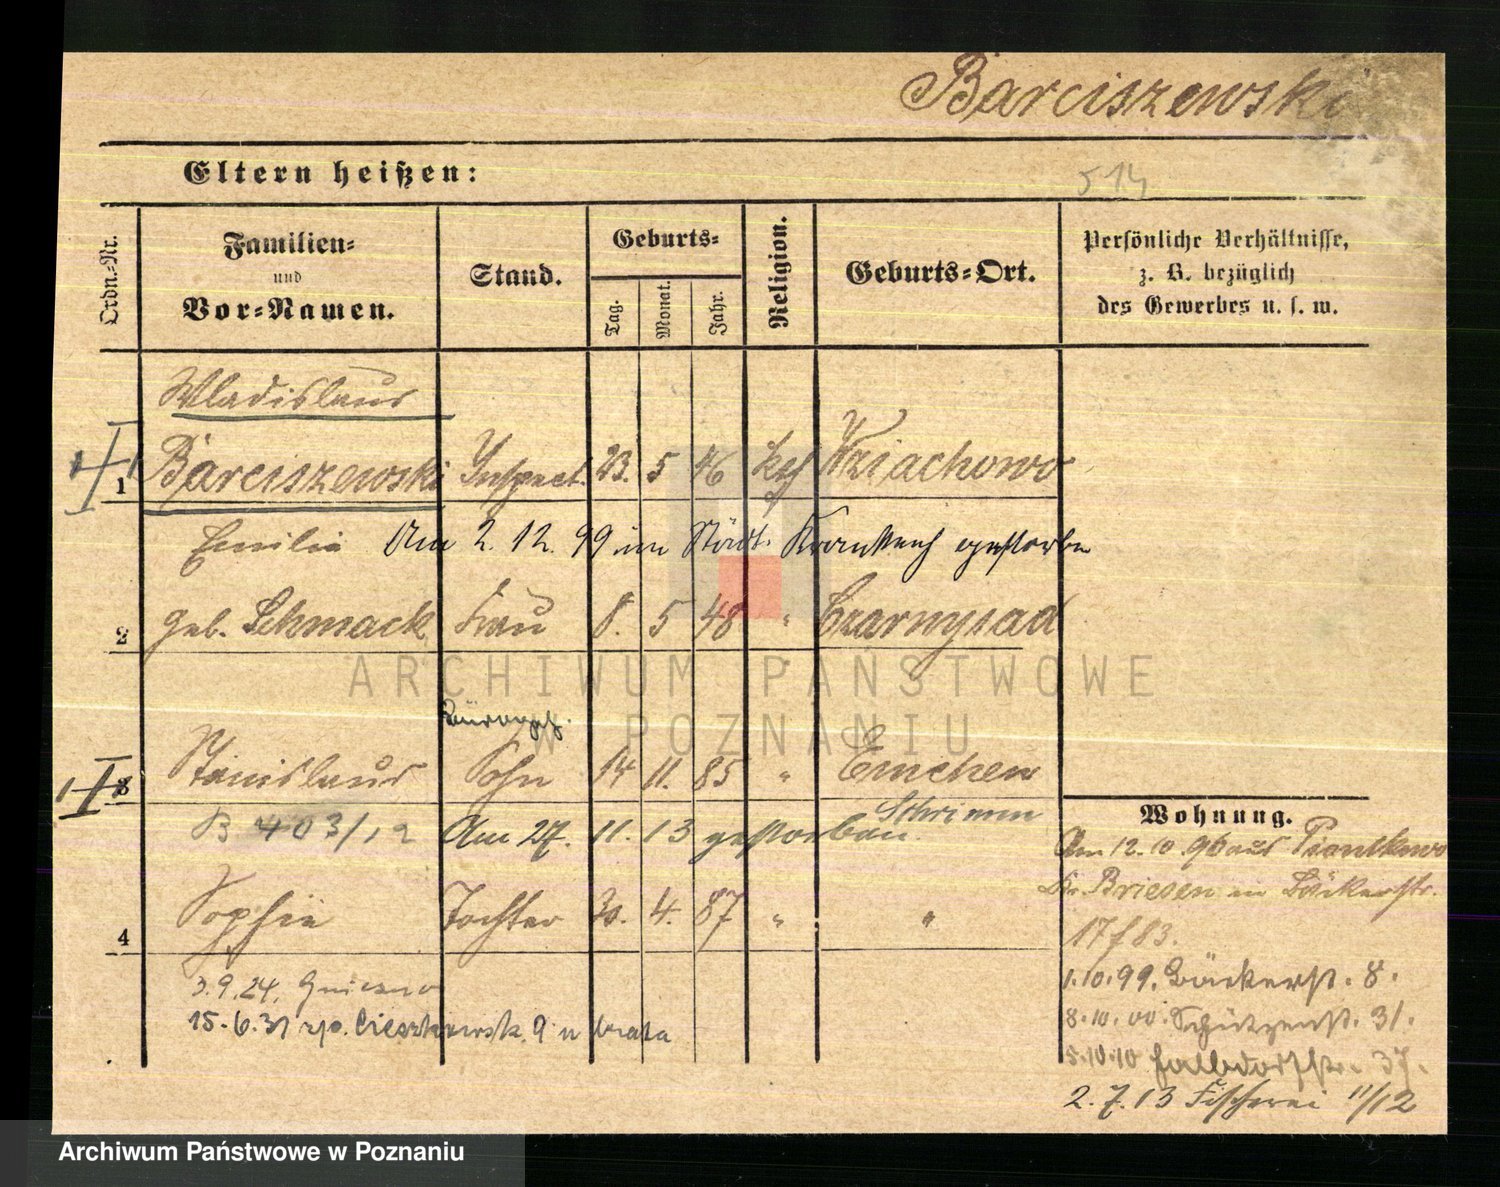 Barciszewski
Eltern heißen:
514
Ordn.-Nr.
Familien-
und
Vor-Namen.
Stand.
Geburts-
Tag.
Monat.
Jahr.
Religion.
Geburts-Ort.
Persönliche Verhältnisse,
z. B. bezüglich
des Gewerbes u. s. w.
Wladislaus
1 Barciszewski Inspect. 23. 5 46 kth Wziachowo
Emilia Am 2. 12. 99 im Städt. Krankenh gestorben
2 geb. Schmack Frau 8. 5 48 " Czarnysad
ARCHIWUM PAŃSTWOWE
W POZNANIU
Bürogeh.
3 Stanislaus Sohn 14 11. 85 " Emchen
Schrimm
B 403/12 Am 27. 11. 13 gestorben.
4 Sophie Tochter 30. 4. 87 " "
3.9.24, Gniezno
15.6.31 Cieszkowsk. 9 u brata
Wohnung.
Am 12.10.96 aus Piontkowo
Kr. Briesen in Bäckerstr.
17 f 83.
1.10.99. Bäckerst. 8.
8.10.00. Schützenst. 31.
5.10.10 Halbdorfstr. 37.
2.7.13 Fischerei 11/12
Archiwum Państwowe w Poznaniu